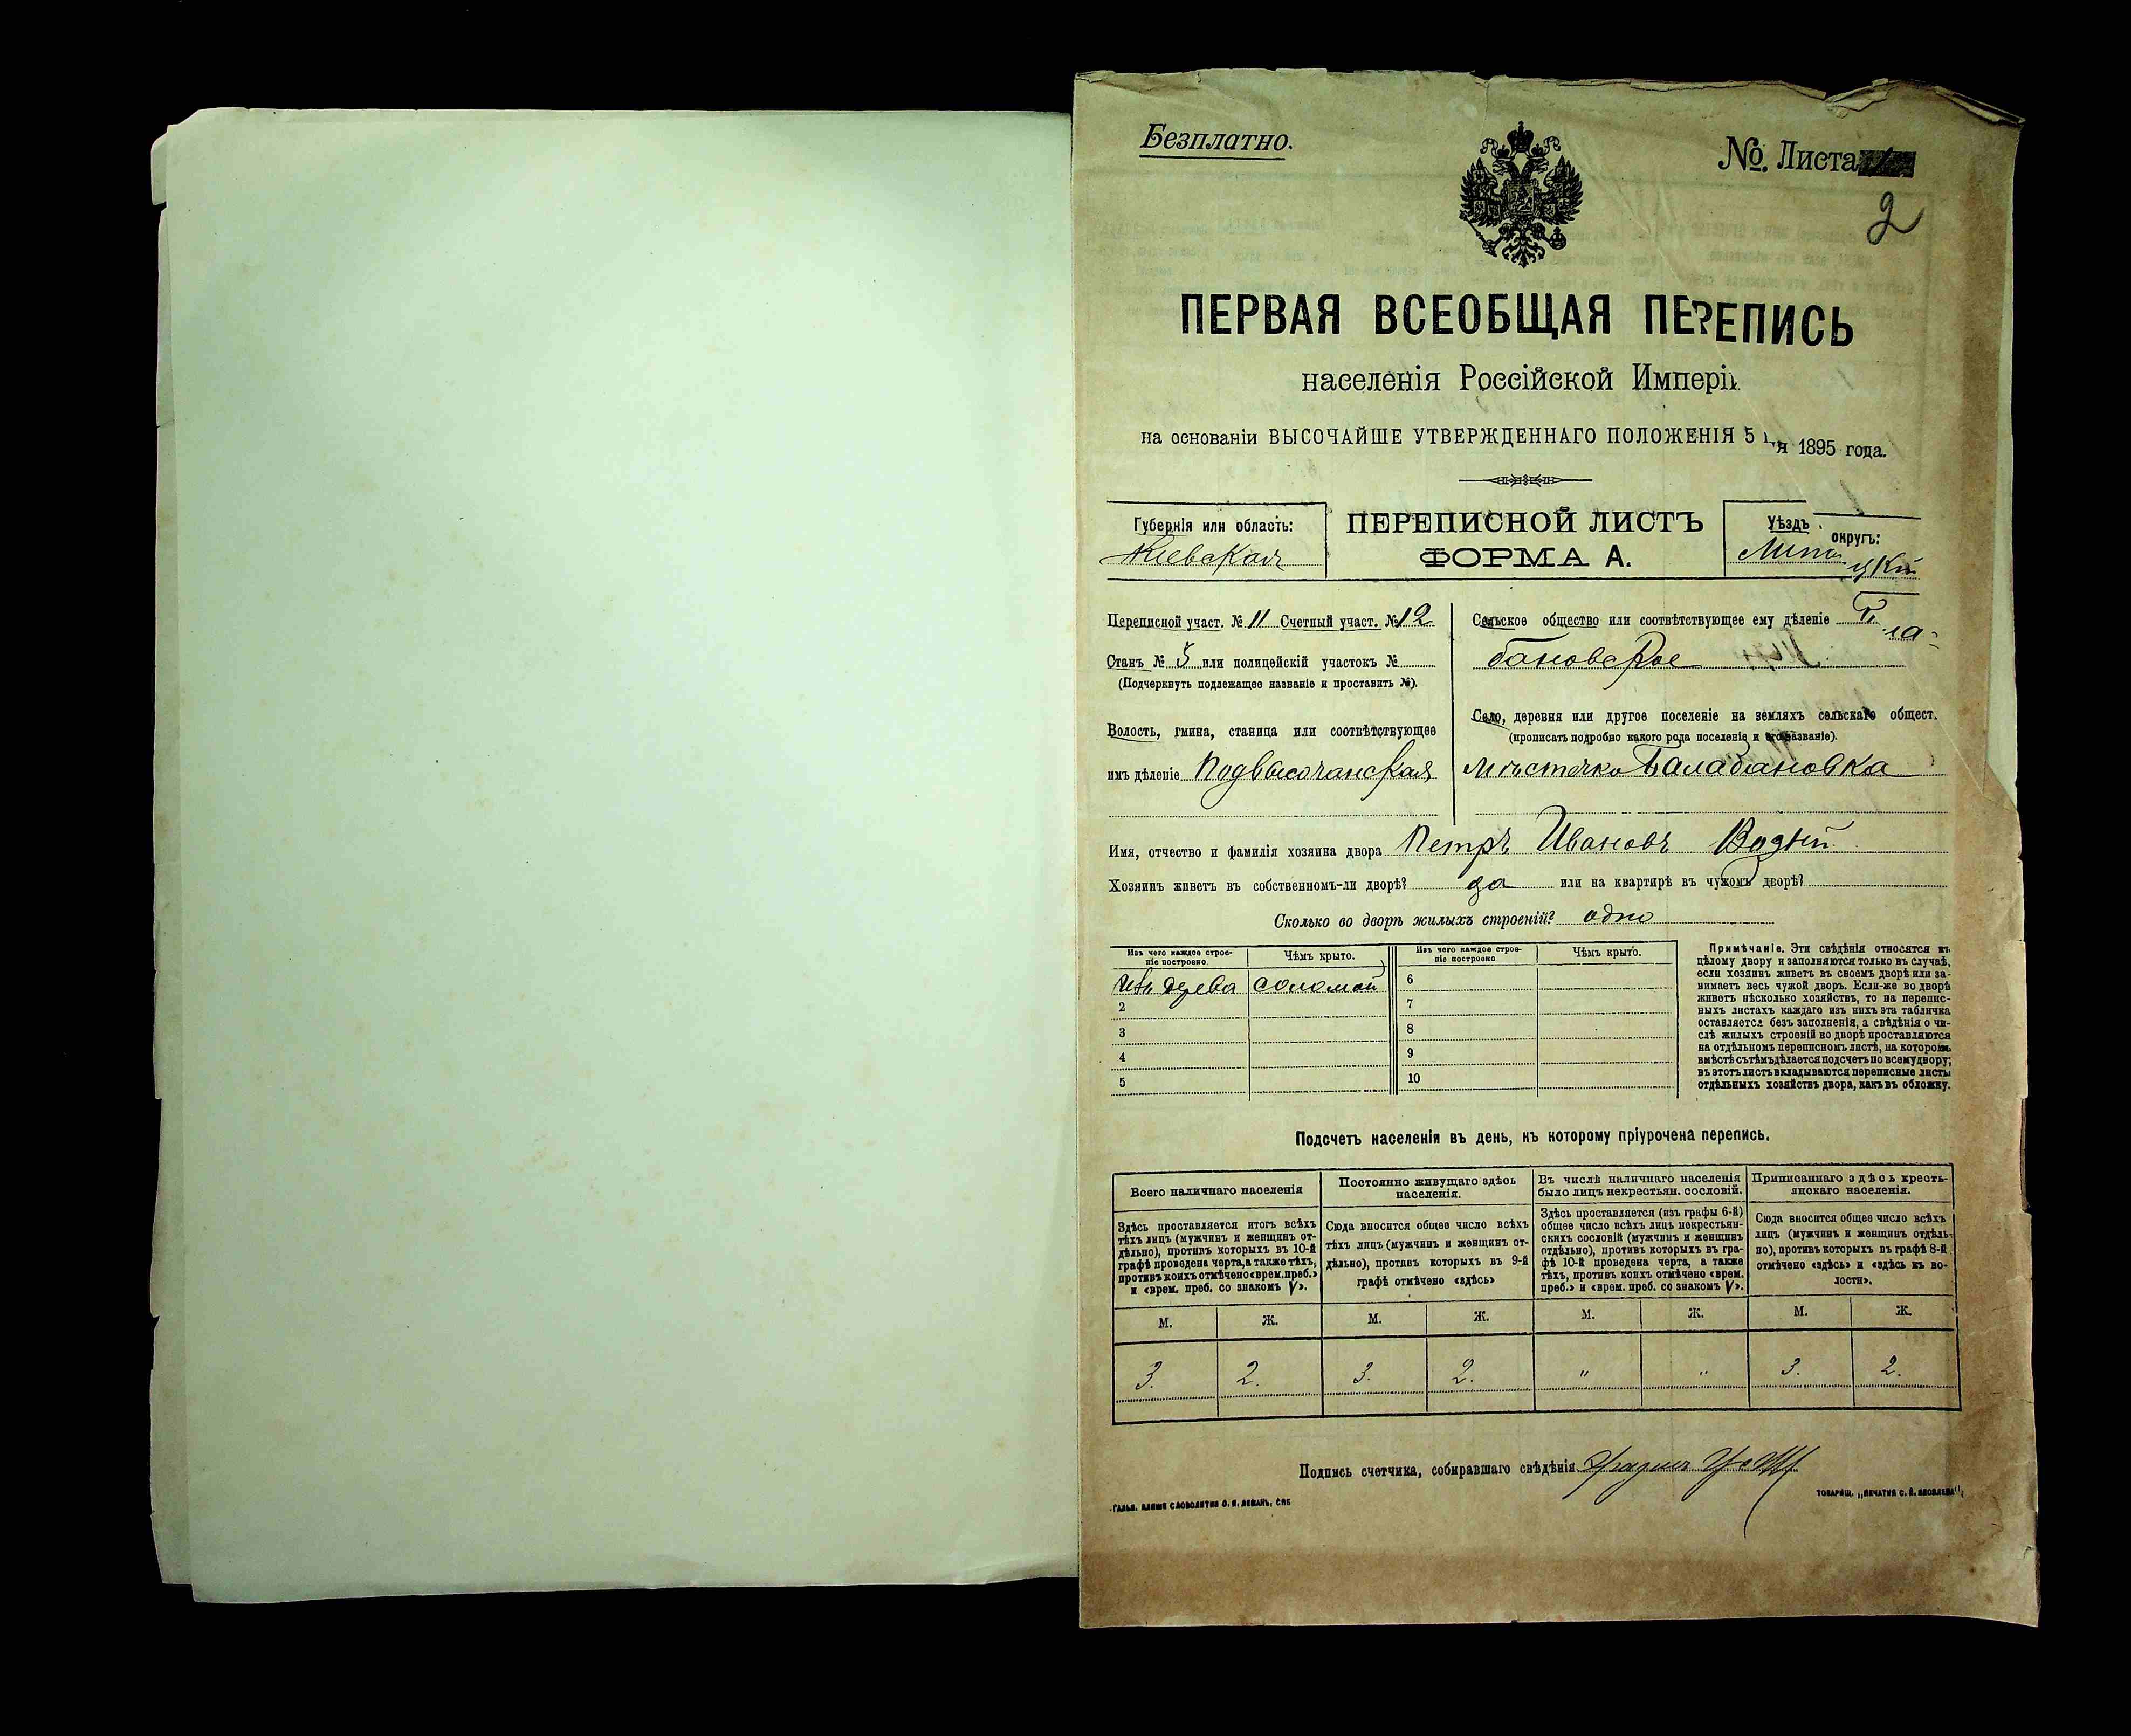 Безплатно.
№. Листа
2
ПЕРВАЯ ВСЕОБЩАЯ ПЕРЕПИСЬ
населенія Россійской Имперіи
на основаніи ВЫСОЧАЙШЕ УТВЕРЖДЕННАГО ПОЛОЖЕНІЯ 5 1895 года.
Губернія или область:
Кіевская
ПЕРЕПИСНОЙ ЛИСТЪ
ФОРМА А.
Уѣздъ округъ:
Липо
цкій
Переписной участ. № 11 Счетный участ. № 12
Станъ № 5 или полицейскій участокъ №
(Подчеркнуть подлежащее названіе и проставить №).
Волость, гмина, станица или соотвѣтствующее
имъ дѣленіе Подвысочанская
Сельское общество или соотвѣтствующее ему дѣленіе
бановское
Село, деревня или другое поселеніе на земляхъ сельскаго общест.
(прописать подробно какого рода поселеніе и его названіе).
мѣстечко Балабановка
Имя, отчество и фамилія хозяина двора Петръ Ивановъ
Хозяинъ живетъ въ собственномъ-ли дворѣ? да или на квартирѣ въ чужомъ дворѣ?
Сколько во дворѣ жилыхъ строеній? одно
Изъ чего каждое строе-
ніе построено.
Чѣмъ крыто.
Изъ чего каждое строе-
ніе построено
Чѣмъ крыто.
Изъ дерева соломой 6
2 7
3 8
4 9
5 10
Примѣчаніе. Эти свѣдѣнія относятся къ
цѣлому двору и заполняются только въ случаѣ,
если хозяинъ живетъ въ своемъ дворѣ или за-
нимаетъ весь чужой дворъ. Если-же во дворѣ
живетъ нѣсколько хозяйствъ, то на перепис-
ныхъ листахъ каждаго изъ нихъ эта табличка
оставляется безъ заполненія, а свѣдѣнія о чи-
слѣ жилыхъ строеній во дворѣ проставляются
на отдѣльномъ переписномъ листѣ, на которомъ
вмѣстѣ съ тѣмъ дѣлается подсчетъ по всему двору;
въ этотъ листъ вкладываются переписные листы
отдѣльныхъ хозяйствъ двора, какъ въ обложку.
Подсчетъ населенія въ день, къ которому пріурочена перепись.
Всего наличнаго населенія
Постоянно живущаго здѣсь
населенія.
Въ числѣ наличнаго населенія
было лицъ некрестьян. сословій.
Приписаннаго здѣсь кресть-
янскаго населенія.
Здѣсь проставляется итогъ всѣхъ
тѣхъ лицъ (мужчинъ и женщинъ от-
дѣльно), противъ которыхъ въ 10-й
графѣ проведена черта, а также тѣхъ,
противъ коихъ отмѣчено «врем. преб.»
и «врем. преб. со знакомъ V».
Сюда вносится общее число всѣхъ
тѣхъ лицъ (мужчинъ и женщинъ от-
дѣльно), противъ которыхъ въ 9-й
графѣ отмѣчено «здѣсь»
Здѣсь проставляется (изъ графы 6-й)
общее число всѣхъ лицъ некрестьян-
скихъ сословій (мужчинъ и женщинъ
отдѣльно), противъ которыхъ въ гра-
фѣ 10-й проведена черта, а также
тѣхъ, противъ коихъ отмѣчено «врем.
преб.» и «врем. преб. со знакомъ V».
Сюда вносится общее число всѣхъ
лицъ (мужчинъ и женщинъ отдѣль-
но), противъ которыхъ въ графѣ 8-й
отмѣчено «здѣсь» и «здѣсь къ во-
лости».
М. Ж. М. Ж. М. Ж. М. Ж.
3. 2. 3. 2. " " 3. 2.
Подпись счетчика, собиравшаго свѣдѣнія
ГАЛЬВ. КЛИШЕ СЛОВОЛИТНИ О. И. ЛЕМАНЪ, СПБ
ТОВАРИЩ. „ПЕЧАТНЯ С. П. ЯКОВЛЕВА".